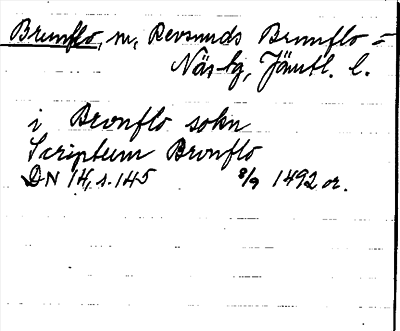 Brunflo, sn, Revsunds Brunflo o
Näs tg, Jämtl. l.
i Bronflo sokn
Scriptum Bronflo
DN 14, s. 145 8/9 1492 or.